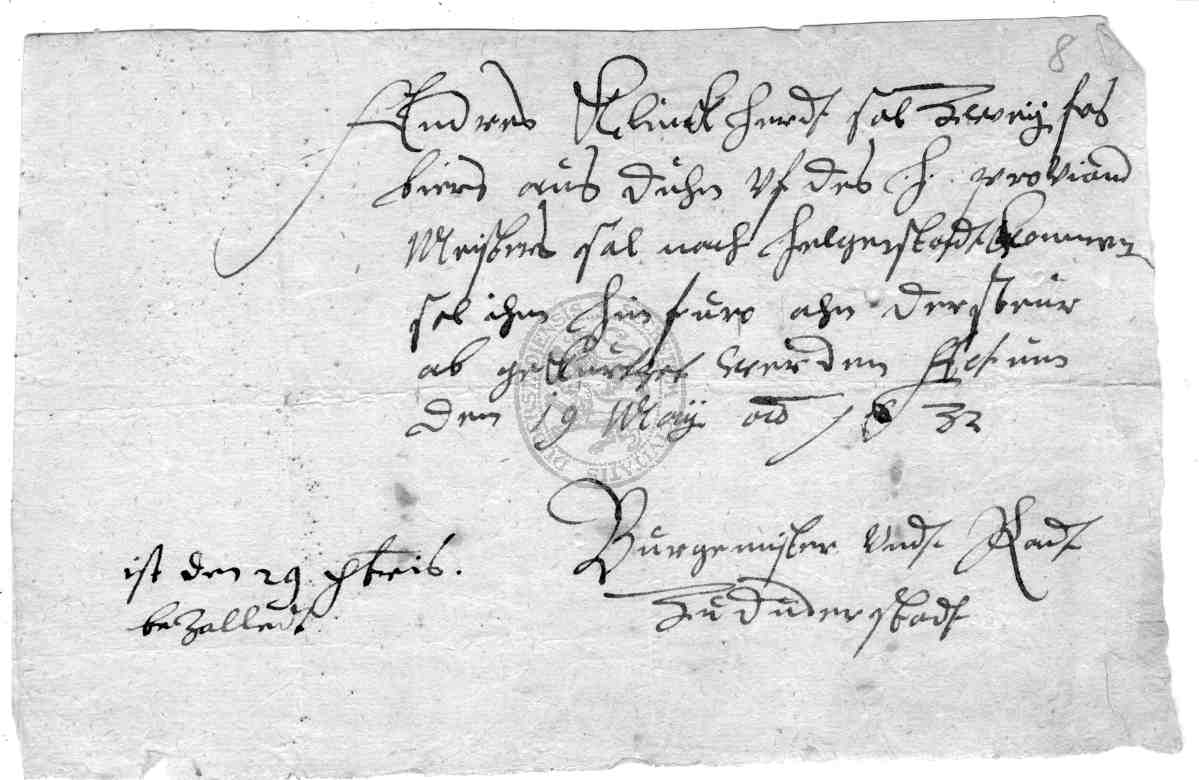 8
Andres Klinckherdt sal Zweÿ fas
biers aus duhn vf des H. proviand
Meisters sal nach Helgerstadt kommen
sol ihm hinfuro ahn der steur
ab gekurtzet werden Actum
den 19 Maÿ ao 1632
Burgemister Undt Radt
Zu duderstadt
ist den 29
bezalledt